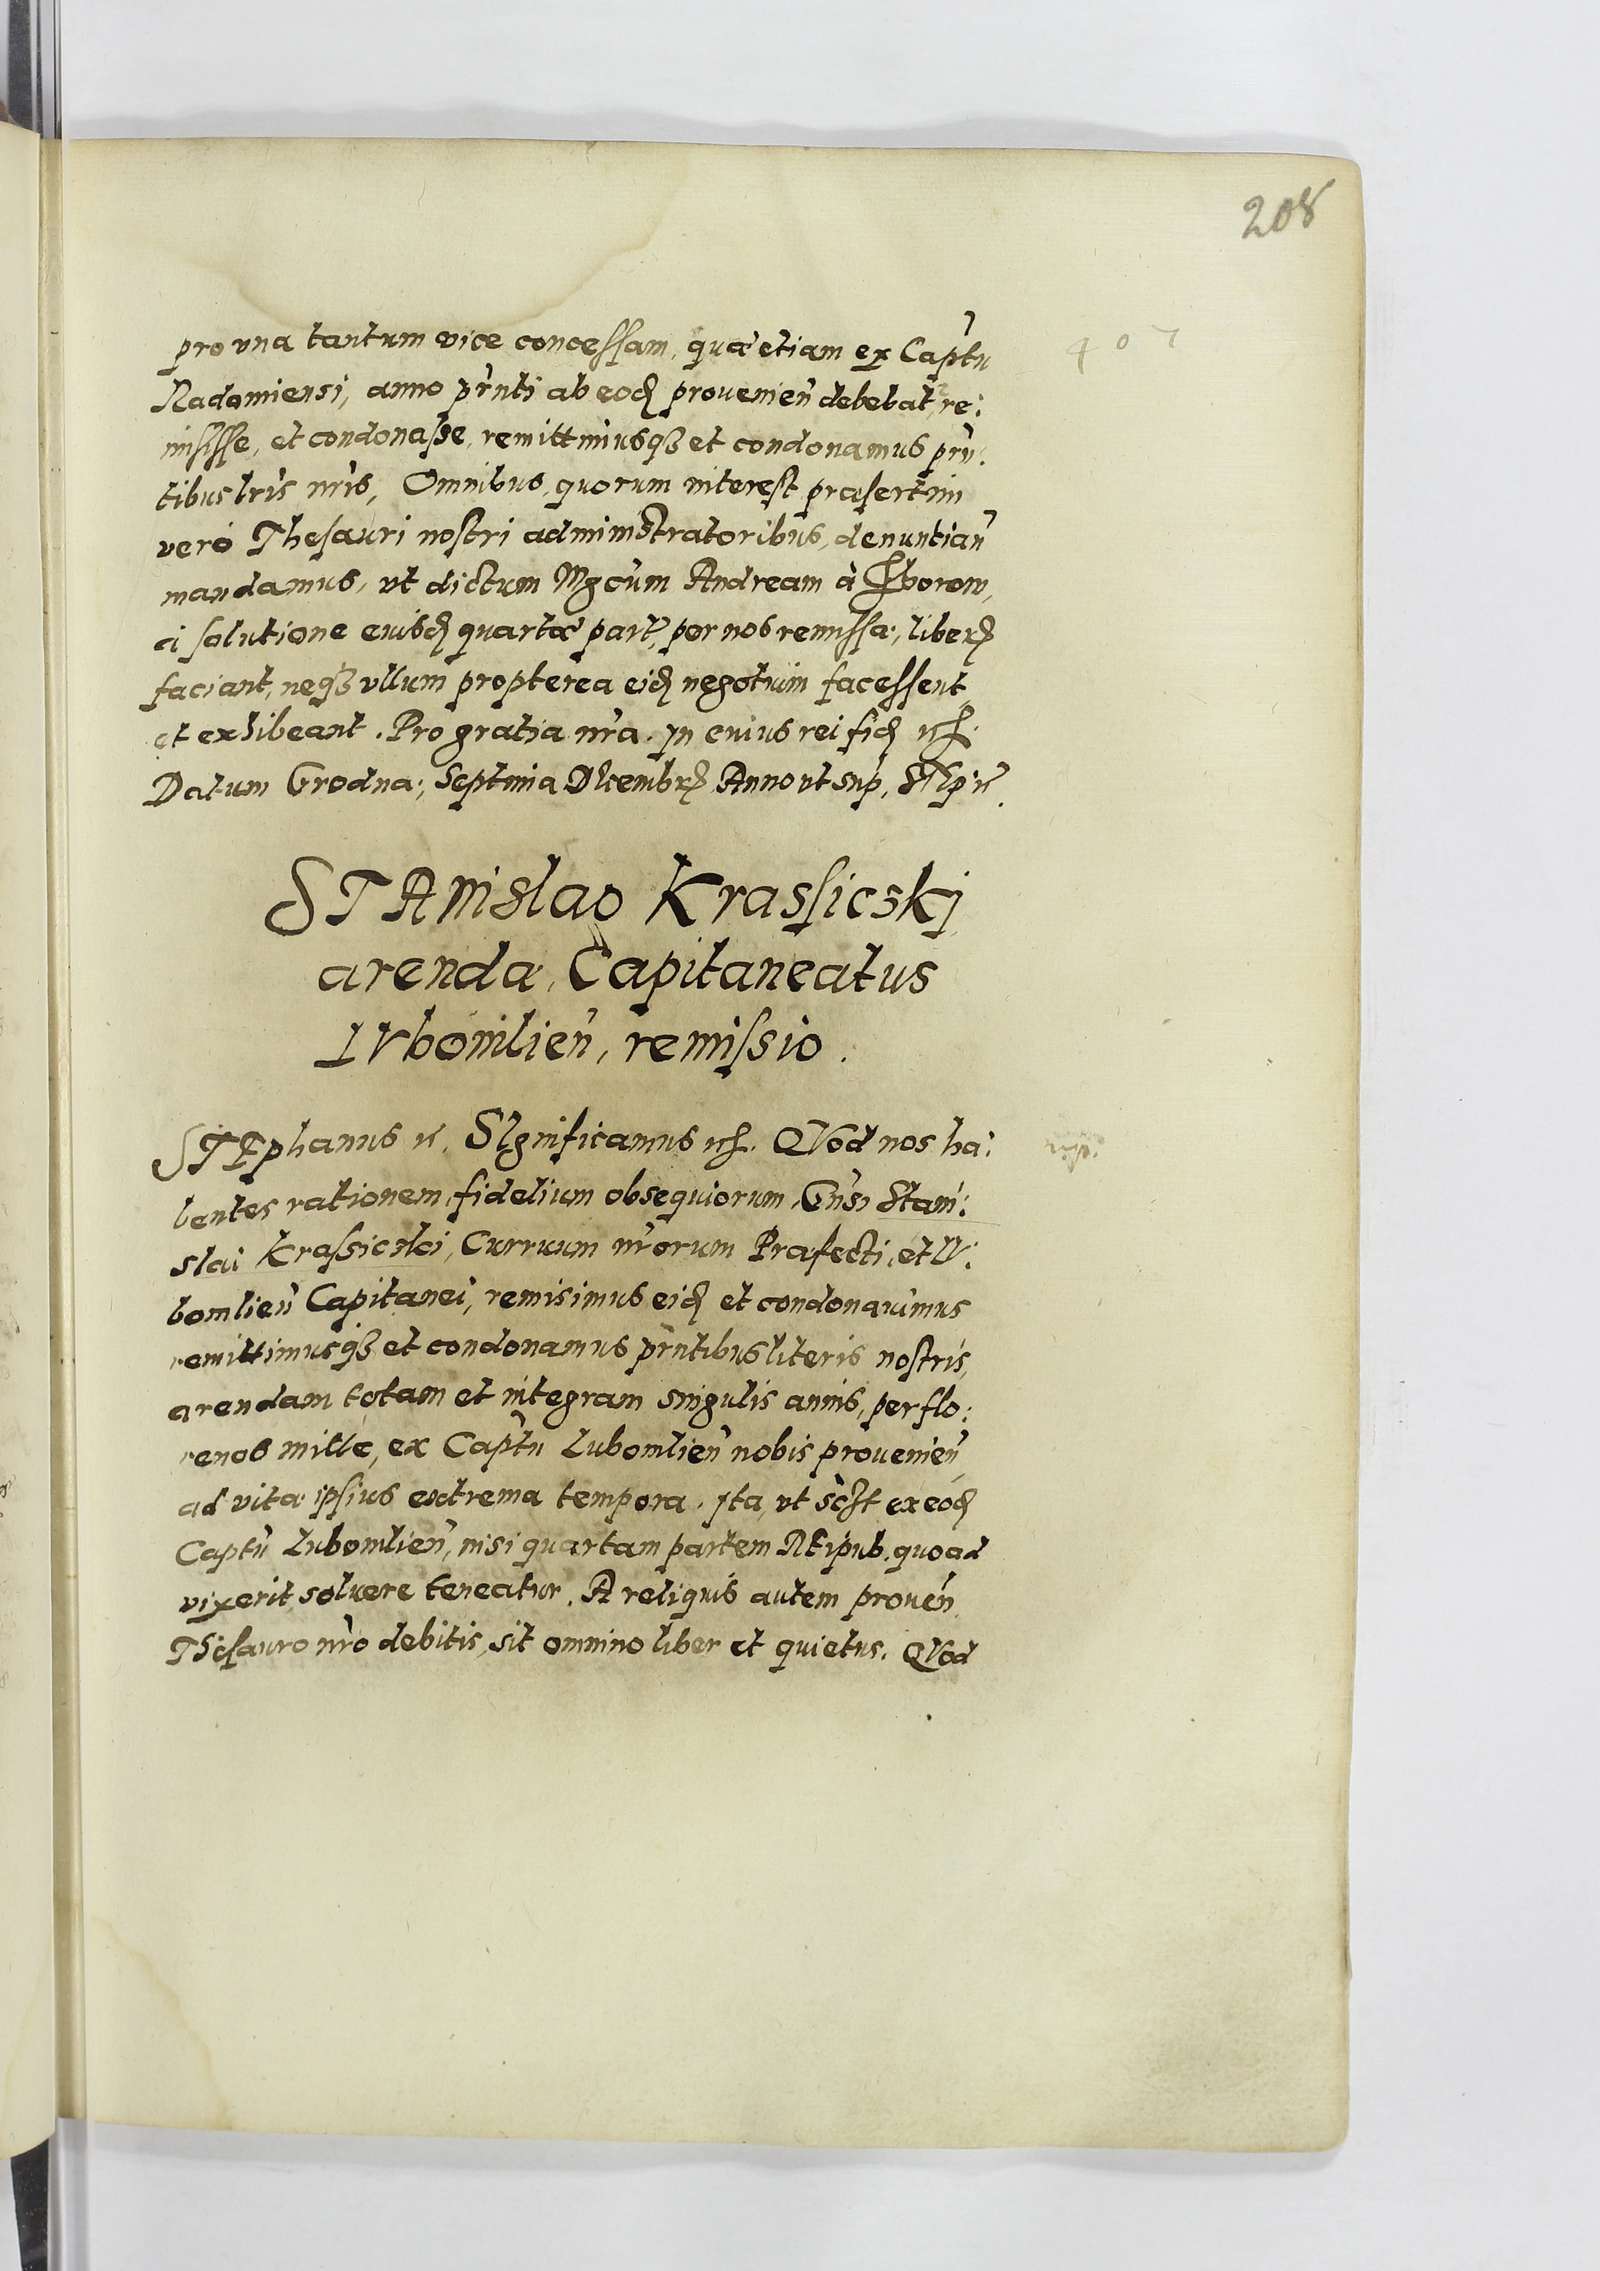 208
407
pro vna tantum vice concessam, quæ etiam ex Captu
Radomiensi, anno prnti ab eod prouenien debebat, re:
misisse, et condonasse, remittimusq3 et condonamus prn:
tibus lris nris, Omnibus, quorum interest præsertim
vero Thesauri nostri administratoribus, denuntian
mandamus, vt dictum Mgcum Andream à Sborow,
a solutione eiusd quartæ part, per nos remissæ, liber
faciant, neq3 vllum propterea eid negotium facessent
et exhibeant. Pro gratia nra. Jn cuius rei fid
Datum Grodnæ, Septima Decembr Anno vt sup.
STANislao Krassicskj
arendæ Capitaneatus
LVbomlien, remissio.
STEphanus Significamus QVod nos ha:
bentes rationem fidelium obsequiorum, Gnsi Stani:
slai Krassicski, Curruum nrorum Præfecti, et LV:
bomlien Capitanei, remisimus eid et condonauimus
remittimusq3 et condonamus prntibus literis nostris,
arendam totam et integram singulis annis, per flo:
renos mille, ex Captu Lubomlien nobis prouenien
ad vitæ ipsius extrema tempora. Jta, vt ex eod
Captu Lubomlien, nisi quartam partem Reipub. quoad
vixerit soluere teneatur. A reliquis autem prouen
Thesauro nro debitis, sit omnino liber et quietus. QVod